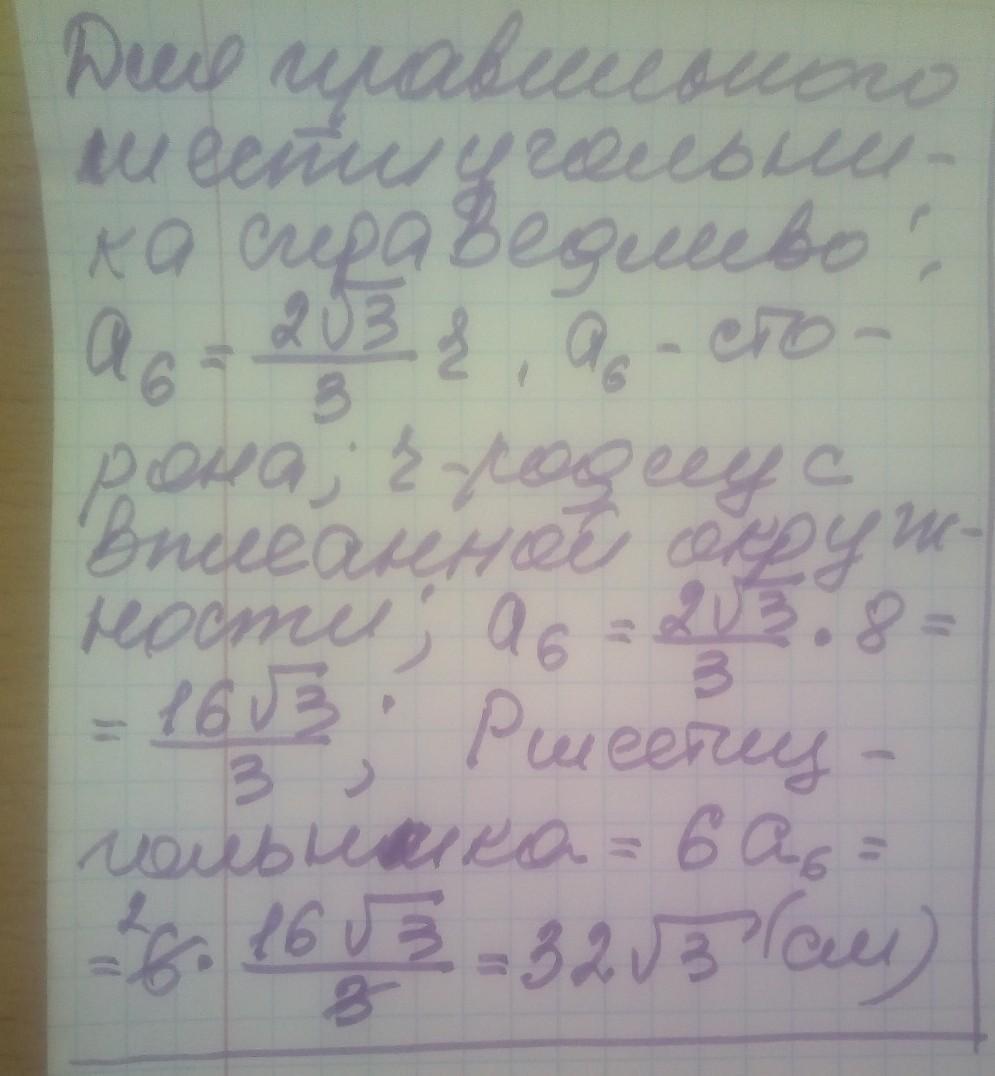 Для правильного
шестиугольни-
ка справедливо:
a₆ = 2√3/3 r, a₆ - сто-
рона; r - радиус
вписанной окруж-
ности; a₆ = 2√3/3 · 8 =
= 16√3/3; Pшестиу-
гольника = 6a₆ =
= ²6 · 16√3/3 = 32√3 (см)